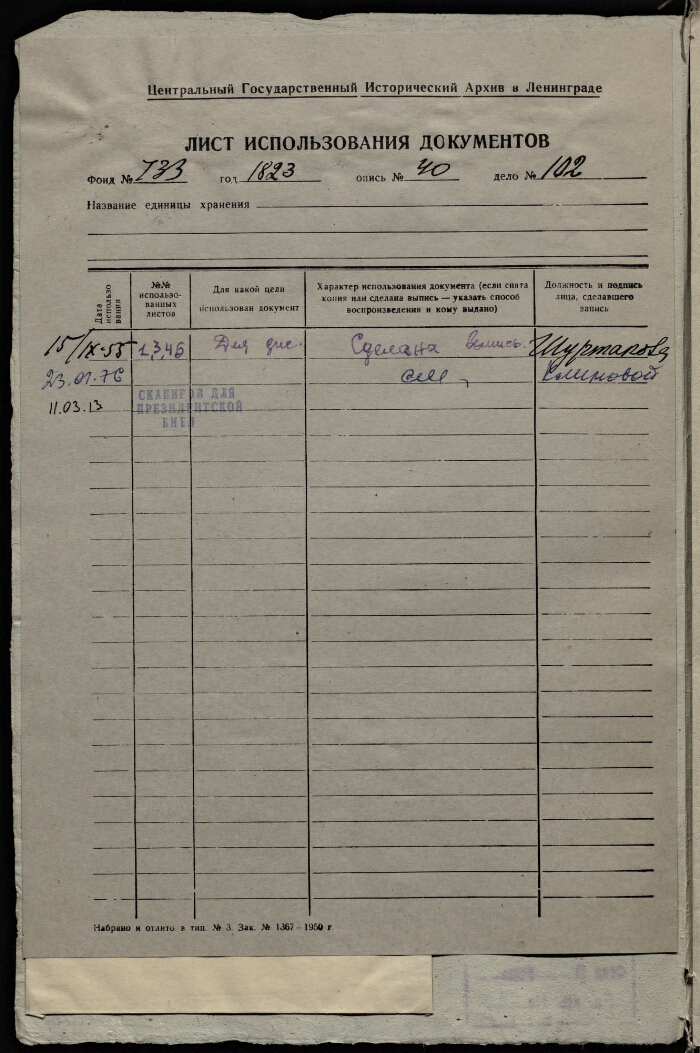 Центральный Государственный Исторический Архив в Ленинграде
ЛИСТ ИСПОЛЬЗОВАНИЯ ДОКУМЕНТОВ
Фонд № 733 год 1823 опись № 40 дело № 102
Название единицы хранения
Дата использования
№№ использованных листов
Для какой цели использован документ
Характер использования документа (если снята копия или сделана выпись — указать способ воспроизведения и кому выдано)
Должность и подпись лица, сделавшего запись
15/IX-55 1,3,46 Для дис. Сделана выпись.
23.01.76
11.03.13 СКАНИРОВ ДЛЯ
ПРЕЗИДЕНТСКОЙ
БИБЛ
Набрано и отлито в тип. № 3. Зак. № 1367 - 1950 г.